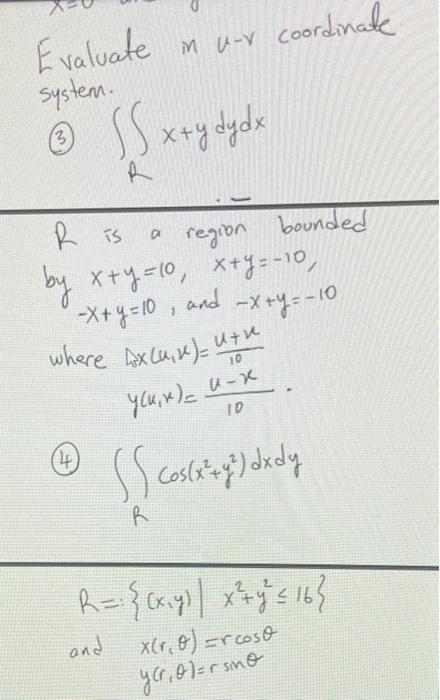 x=0
Evaluate in u-v coordinate
system.
③ ∬ x+y dydx
R
R is a region bounded
by x+y=10, x+y=-10,
-x+y=10, and -x+y=-10
where x(u,v)= u+v
10
y(u,v)= u-v
10 .
④ ∬ cos(x²+y²) dxdy
R
R=:{(x,y)| x²+y² ≤ 16}
and x(r,θ)=rcosθ
y(r,θ)=r sinθ